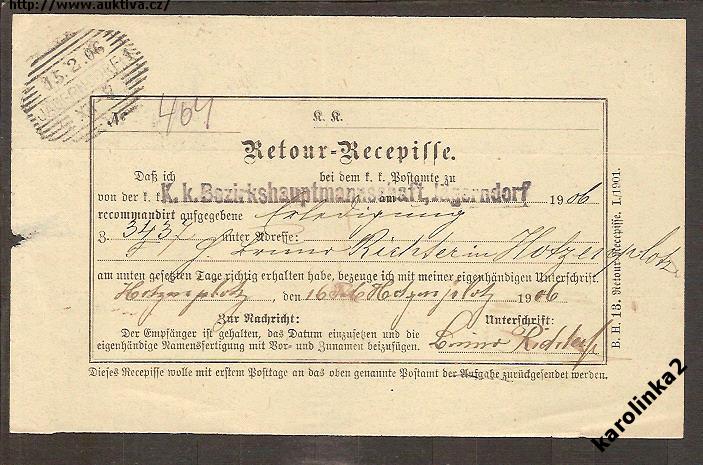 http://www.auktiva.cz/
15.2.06
464
K. K.
Retour-Recepisse.
Daß ich bei dem k. k. Postamte zu
von der k. k. K. k. Bezirkshauptmannschaft, Jägerndorf am 1906
recommandirt aufgegebene Erledigung
Z. 3437 unter Adresse: Bruno Richter in Hotzenplotz
am unten gesetzten Tage richtig erhalten habe, bezeuge ich mit meiner eigenhändigen Unterschrift.
Hotzenplotz, den 16 Hotzenplotz 1906
Zur Nachricht: Unterschrift:
Der Empfänger ist gehalten, das Datum einzusetzen und die
eigenhändige Namensfertigung mit Vor- und Zunamen beizufügen. Bruno Richter
Dieses Recepisse wolle mit erstem Posttage an das oben genannte Postamt der Aufgabe zurückgesendet werden.
B. H. 18. Retour-Recepisse. I./1901.
karolinka2